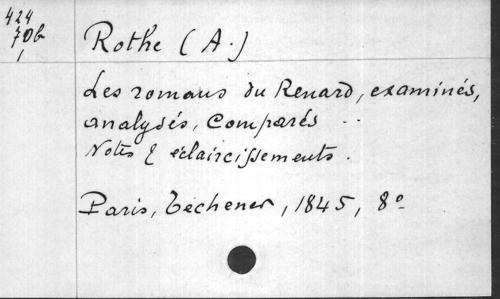 424
70b
1
Rothe (A.)
Les romans du Renard, examinés,
analysés, Comparés ..
Notes & éclaircissements.
Paris, Techener, 1845, 8°